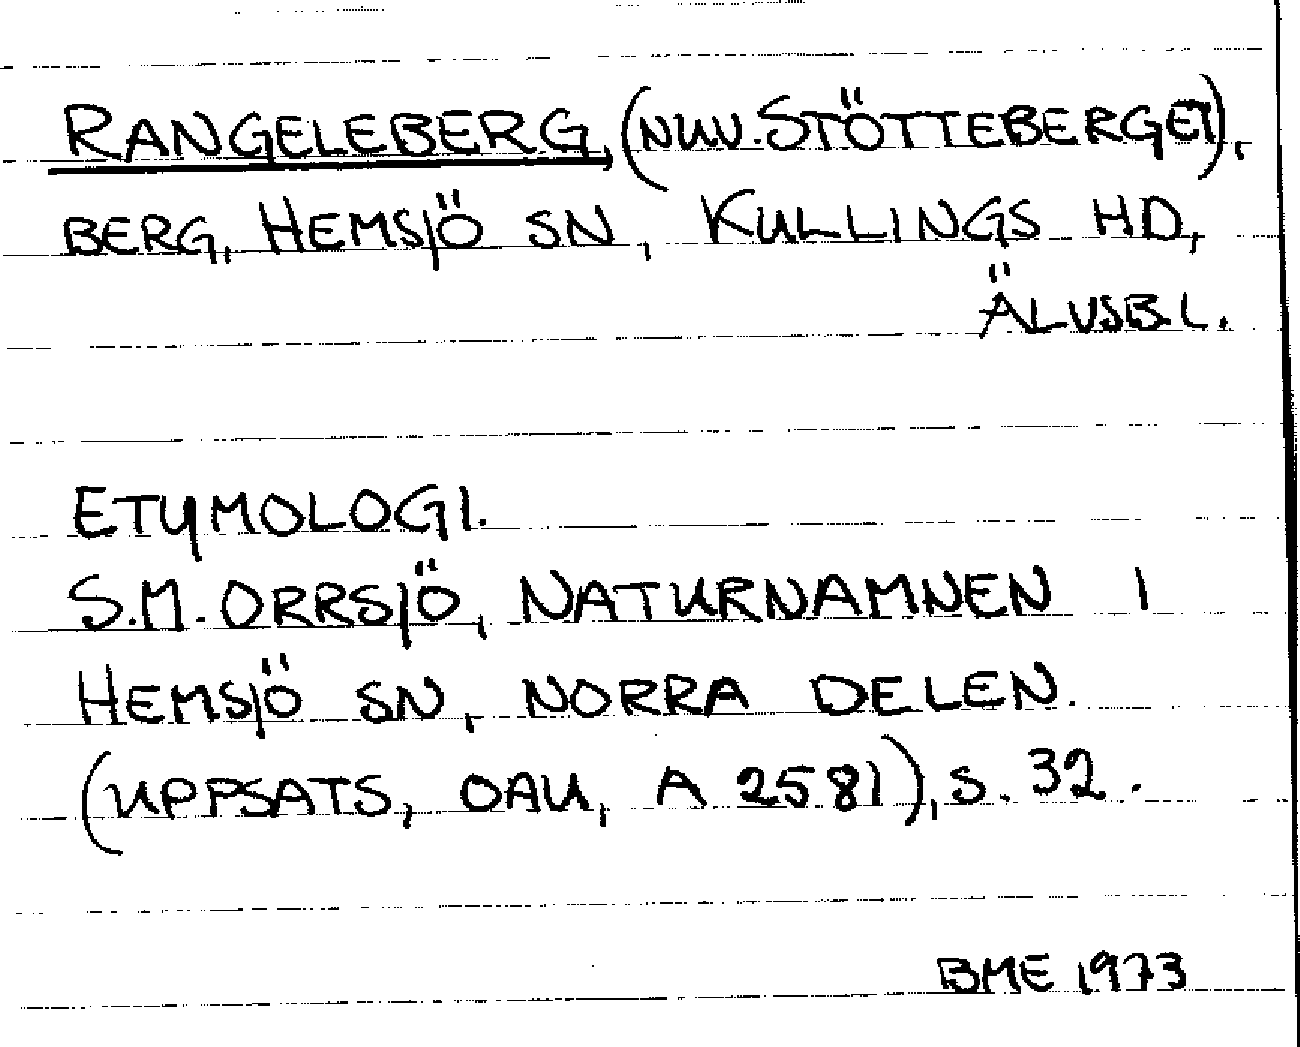 RANGELEBERG, (NUV. STÖTTEBERGET),
BERG, HEMSJÖ SN, KULLINGS HD,
ÄLVSB.L.
ETYMOLOGI.
S.M. ORRSJÖ, NATURNAMNEN I
HEMSJÖ SN, NORRA DELEN.
(UPPSATS, OAU, A 2581), S. 32.
BME 1973